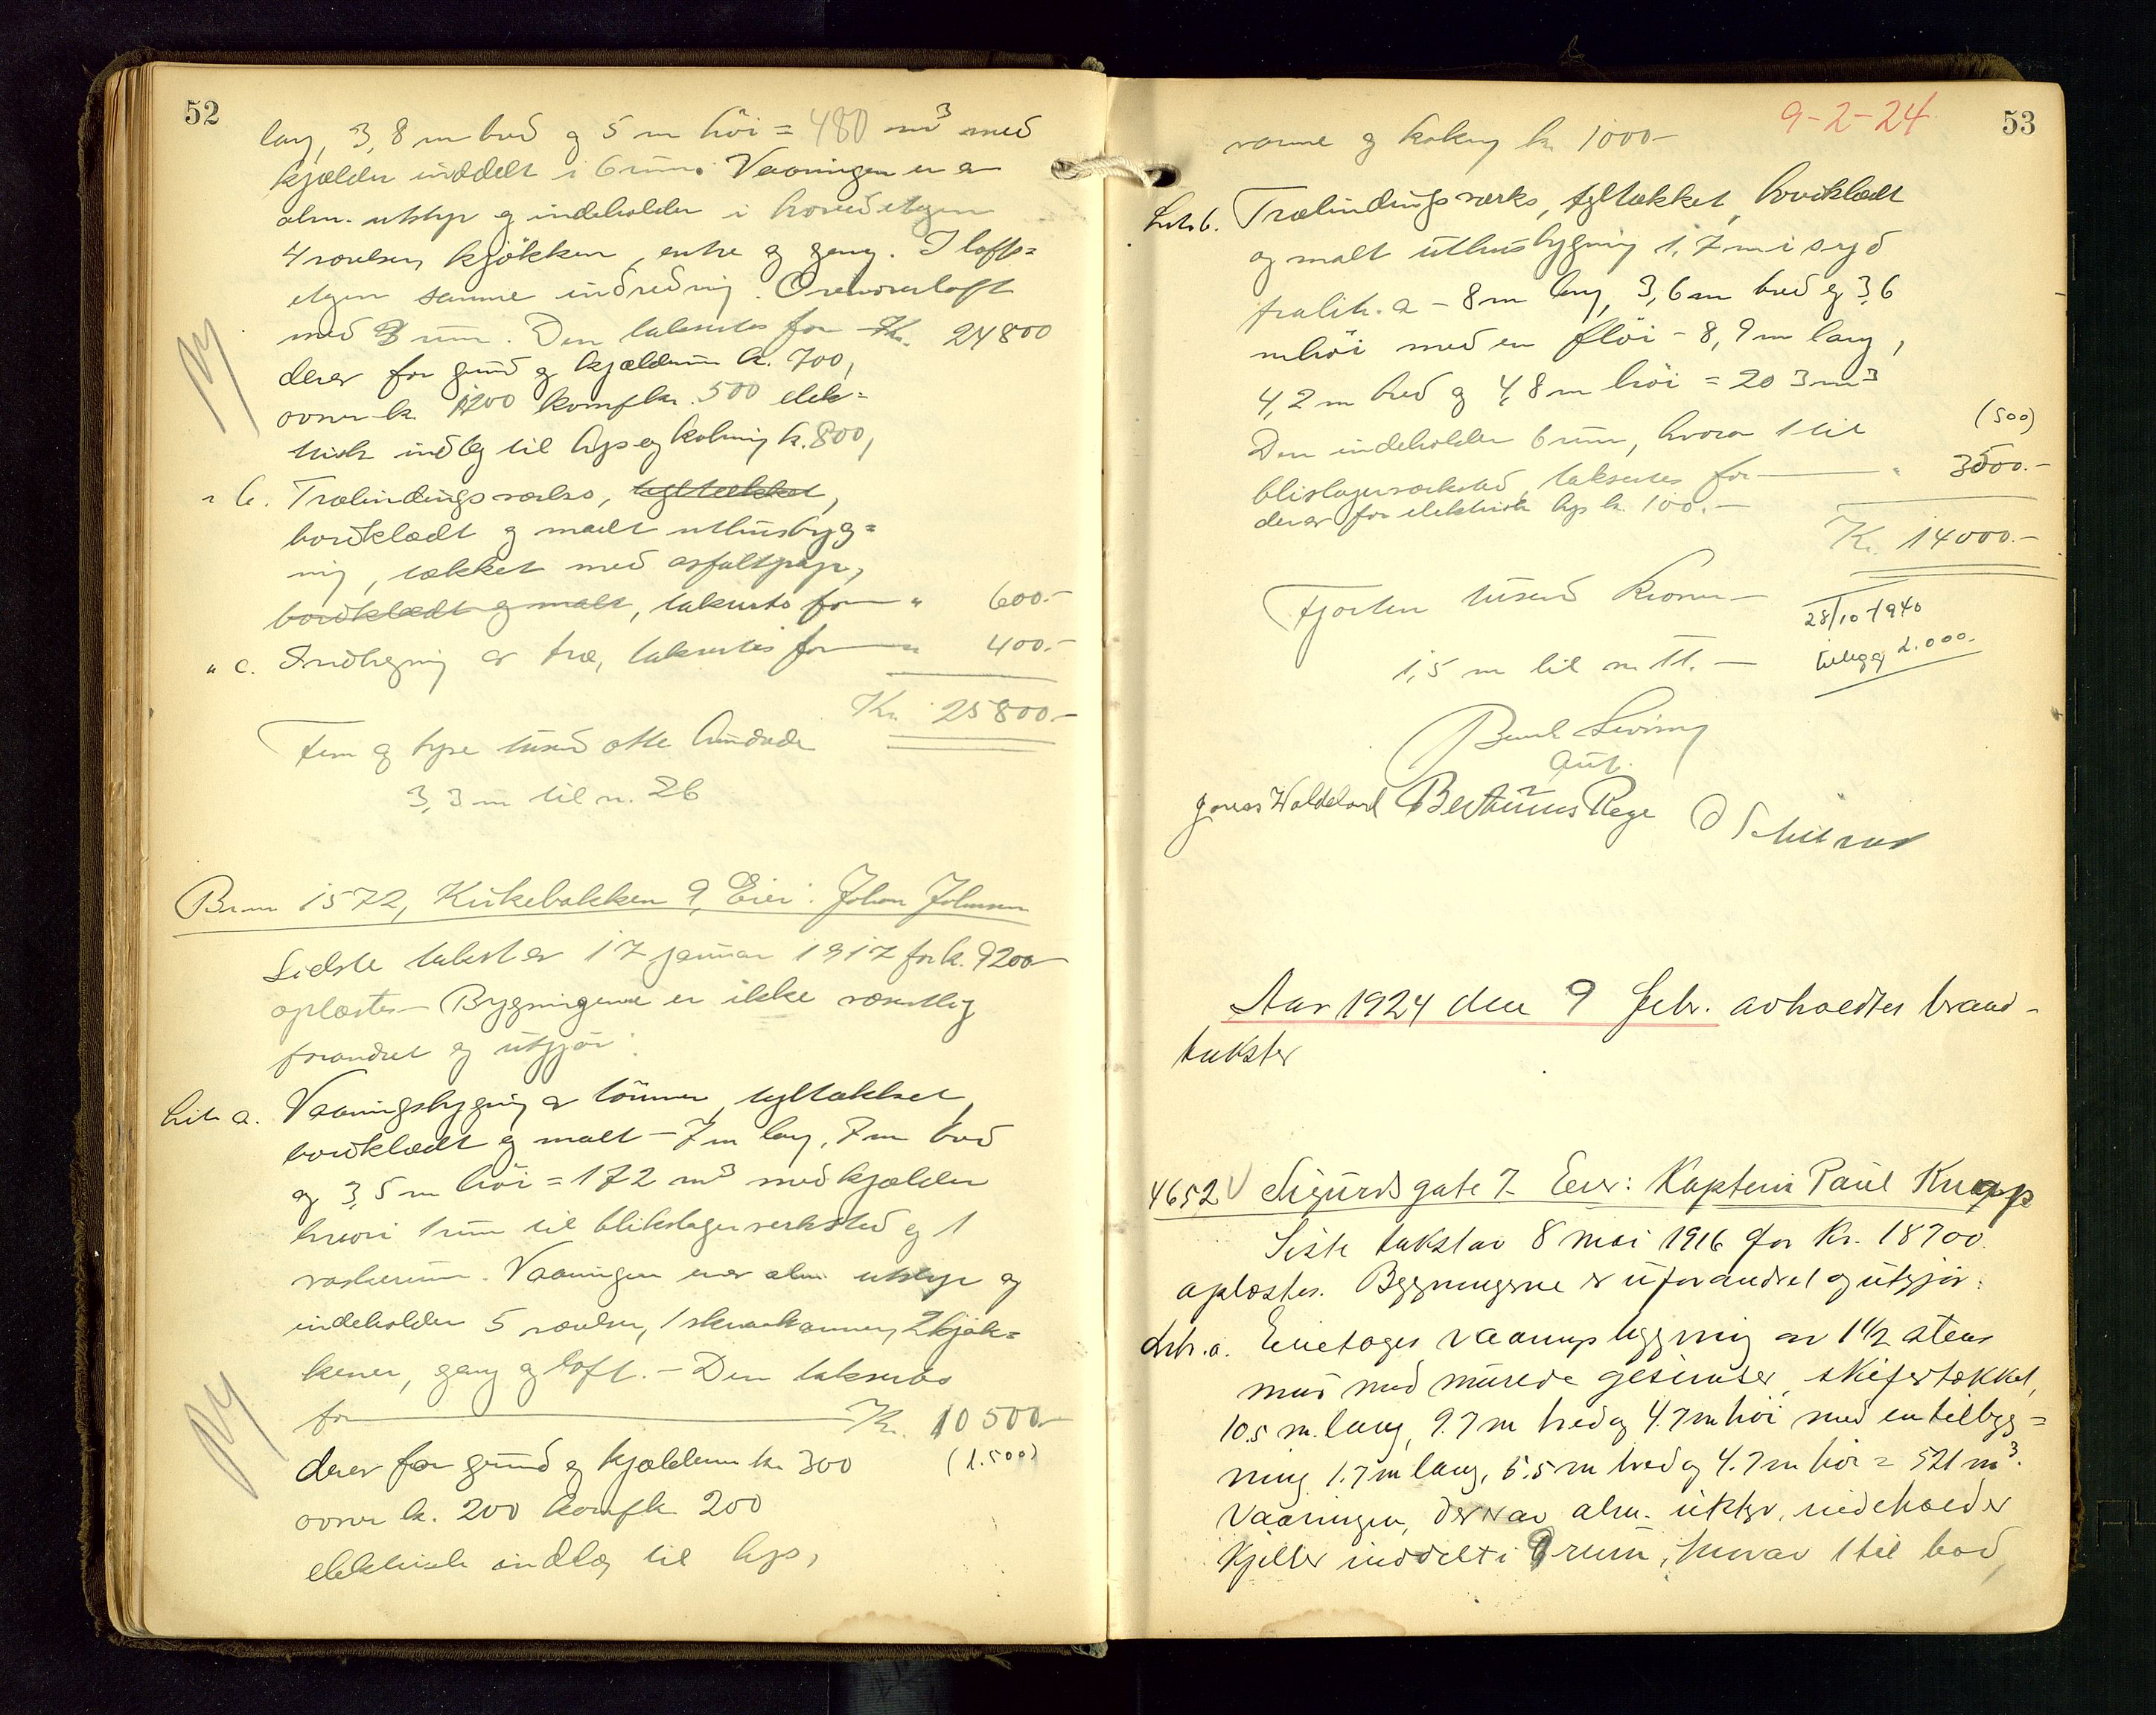 52
lang, 3,8 m bred og 5 m höi = 480 m³ med
kjælder inddelt i 6 rum. Vaaningen er av
alm. utstyr og indeholder i hovedetagen
4 værelser, kjökken, entre og gang. I lofts=
etagen samme indredning. Overværelsloft
med 3 rum. Den takseres for Kr. 24800
derav for grund og kjælderrum kr. 700,
ovner kr. 1200 komfkr. 500 elek=
trisk indlæg til lys og kokning kr. 800,
" b. Træbindingsværks, tegltækket,
bordklædt og malt uthusbyg=
ning, tækket med asfaltpap,
bordklædt og malt, takseres for " 600.-
" c. Indhegning av træ, takseres for " 400.-
Kr. 25800.-
Fem og tyve tusen otte hundrede
3,3 m til n. 26
Br.nr 1572, Kirkebakken 9, Eier: Johan Johnsen
Sidste takst av 17 januar 1917 for kr. 9200-
oplæstes- Bygningerne er ikke væsentlig
forandret og utgjör:
Lit. a. Vaaningsbygning av tömmer, tegltækket,
bordklædt og malt - 7 m lang, 7 m bred
og 3,5 m höi = 172 m³ med kjælder
hvori 1 rum til blikslagerverksted og 1
vaskerum. Vaaningen er av alm. utstyr og
indeholder 5 værelser, 1 skraakammer, 2 kjök=
kener, gang og loft. - Den takseres
for Kr. 10500-
derav for grund og kjælderrum kr. 300 (1.500)
ovner kr. 200 komfkr 200
elektrisk indlæg til lys,
9-2-24
53
varme og kokning kr. 1000-
Lit. b. Træbindingsværks, tegltækket, bordklædt
og malt uthusbygning 1,7 m i syd
fra lit. a - 8 m lang, 3,6 m bred og 3,6
m höi med en flöi - 8,9 m lang,
4,2 m bred og 4,8 m höi = 203 m³
Den indeholder 6 rum, hvorav 1 til (500)
blikslagerverksted, takseres for " 3500.-
derav for elektrisk lys kr. 100.-
Kr. 14000.-
Fjorten tusend Kroner-
28/10-1940
1,5 m til n. 11. - tillegg 2.000.-
Aut.
Jonas Waldeland Bertinius Rege
Aar 1924 den 9 febr. avholdtes brand-
takster
4652 V Sigurdsgate 7. Eier: Kaptein Paul Knapp
Siste takst av 8 mai 1916 for Kr. 18700.
oplæstes. Bygningerne er uforandret og utgjör:
Litr. a. Enetages vaaningsbygning av 1 1/2 stens
mur med murede gesimser, skifertækket,
10.5 m. lang, 9.7 m bred og 4.7 m höi med en tilbyg=
ning 1.7 m lang, 5.5 m bred og 4.7 m höi = 521 m³.
Vaaningen, der er av alm. utstyr, indeholder
Kjelder inddelt i 9 rum, hvorav 1 til bad,